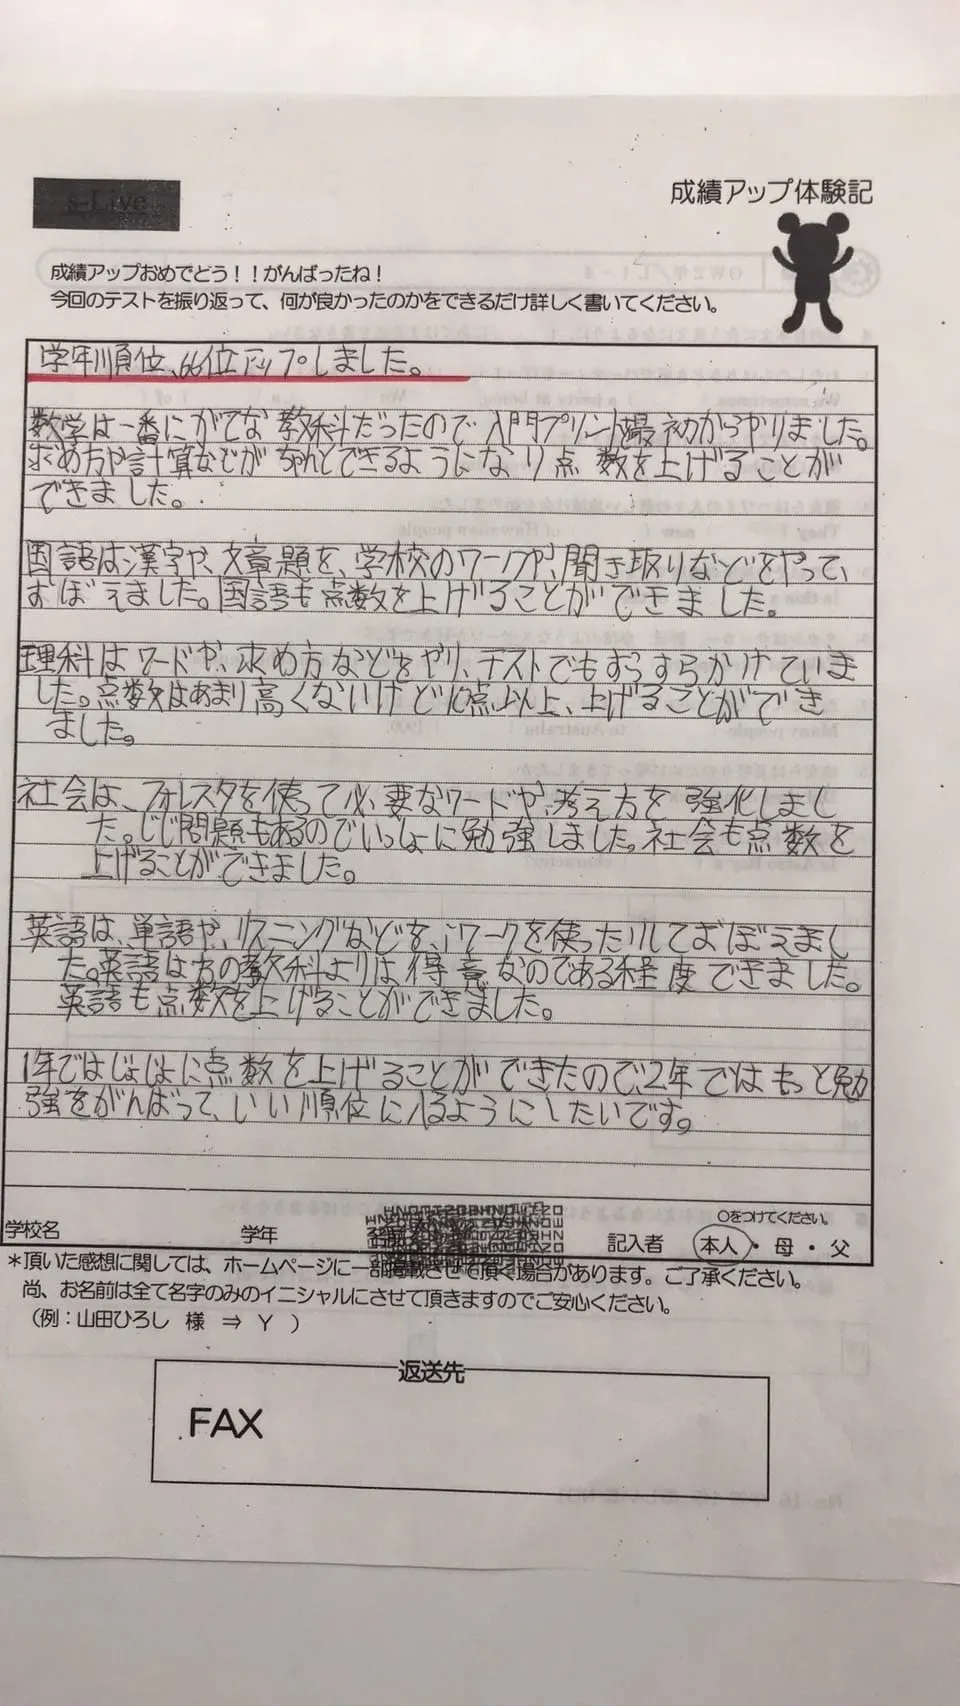 s-Live
成績アップ体験記
成績アップおめでとう！！がんばったね！
今回のテストを振り返って、何が良かったのかをできるだけ詳しく書いてください。
学年順位、66位アップしました。
数学は一番にがてな教科だったので入門プリント最初からやりました。
求め方や計算などがちゃんとできるようになり点数を上げることが
できました。
国語は漢字や、文章題を、学校のワークや、聞き取りなどをやって、
おぼえました。国語も点数を上げることができました。
理科はワードや、求め方などをやり、テストでもすらすらかけていま
した。点数はあまり高くないけど10点以上、上げることができ
ました。
社会は、フォレスタを使って必要なワードや、考え方を強化しまし
た。じじ問題もあるのでいっしょに勉強しました。社会も点数を
上げることができました。
英語は、単語や、リスニングなどを、ワークを使ったりしておぼえまし
た。英語は他の教科よりは得意なのである程度できました。
英語も点数を上げることができました。
1年ではじょじょに点数を上げることができたので、2年ではもっと勉
強をがんばって、いい順位に入るようにしたいです。
学校名 学年 記入者 ○をつけてください。 本人・母・父
＊頂いた感想に関しては、ホームページに一部掲載させて頂く場合があります。ご了承ください。
尚、お名前は全て名字のみのイニシャルにさせて頂きますのでご安心ください。
（例：山田ひろし 様 ⇒ Y ）
返送先
FAX